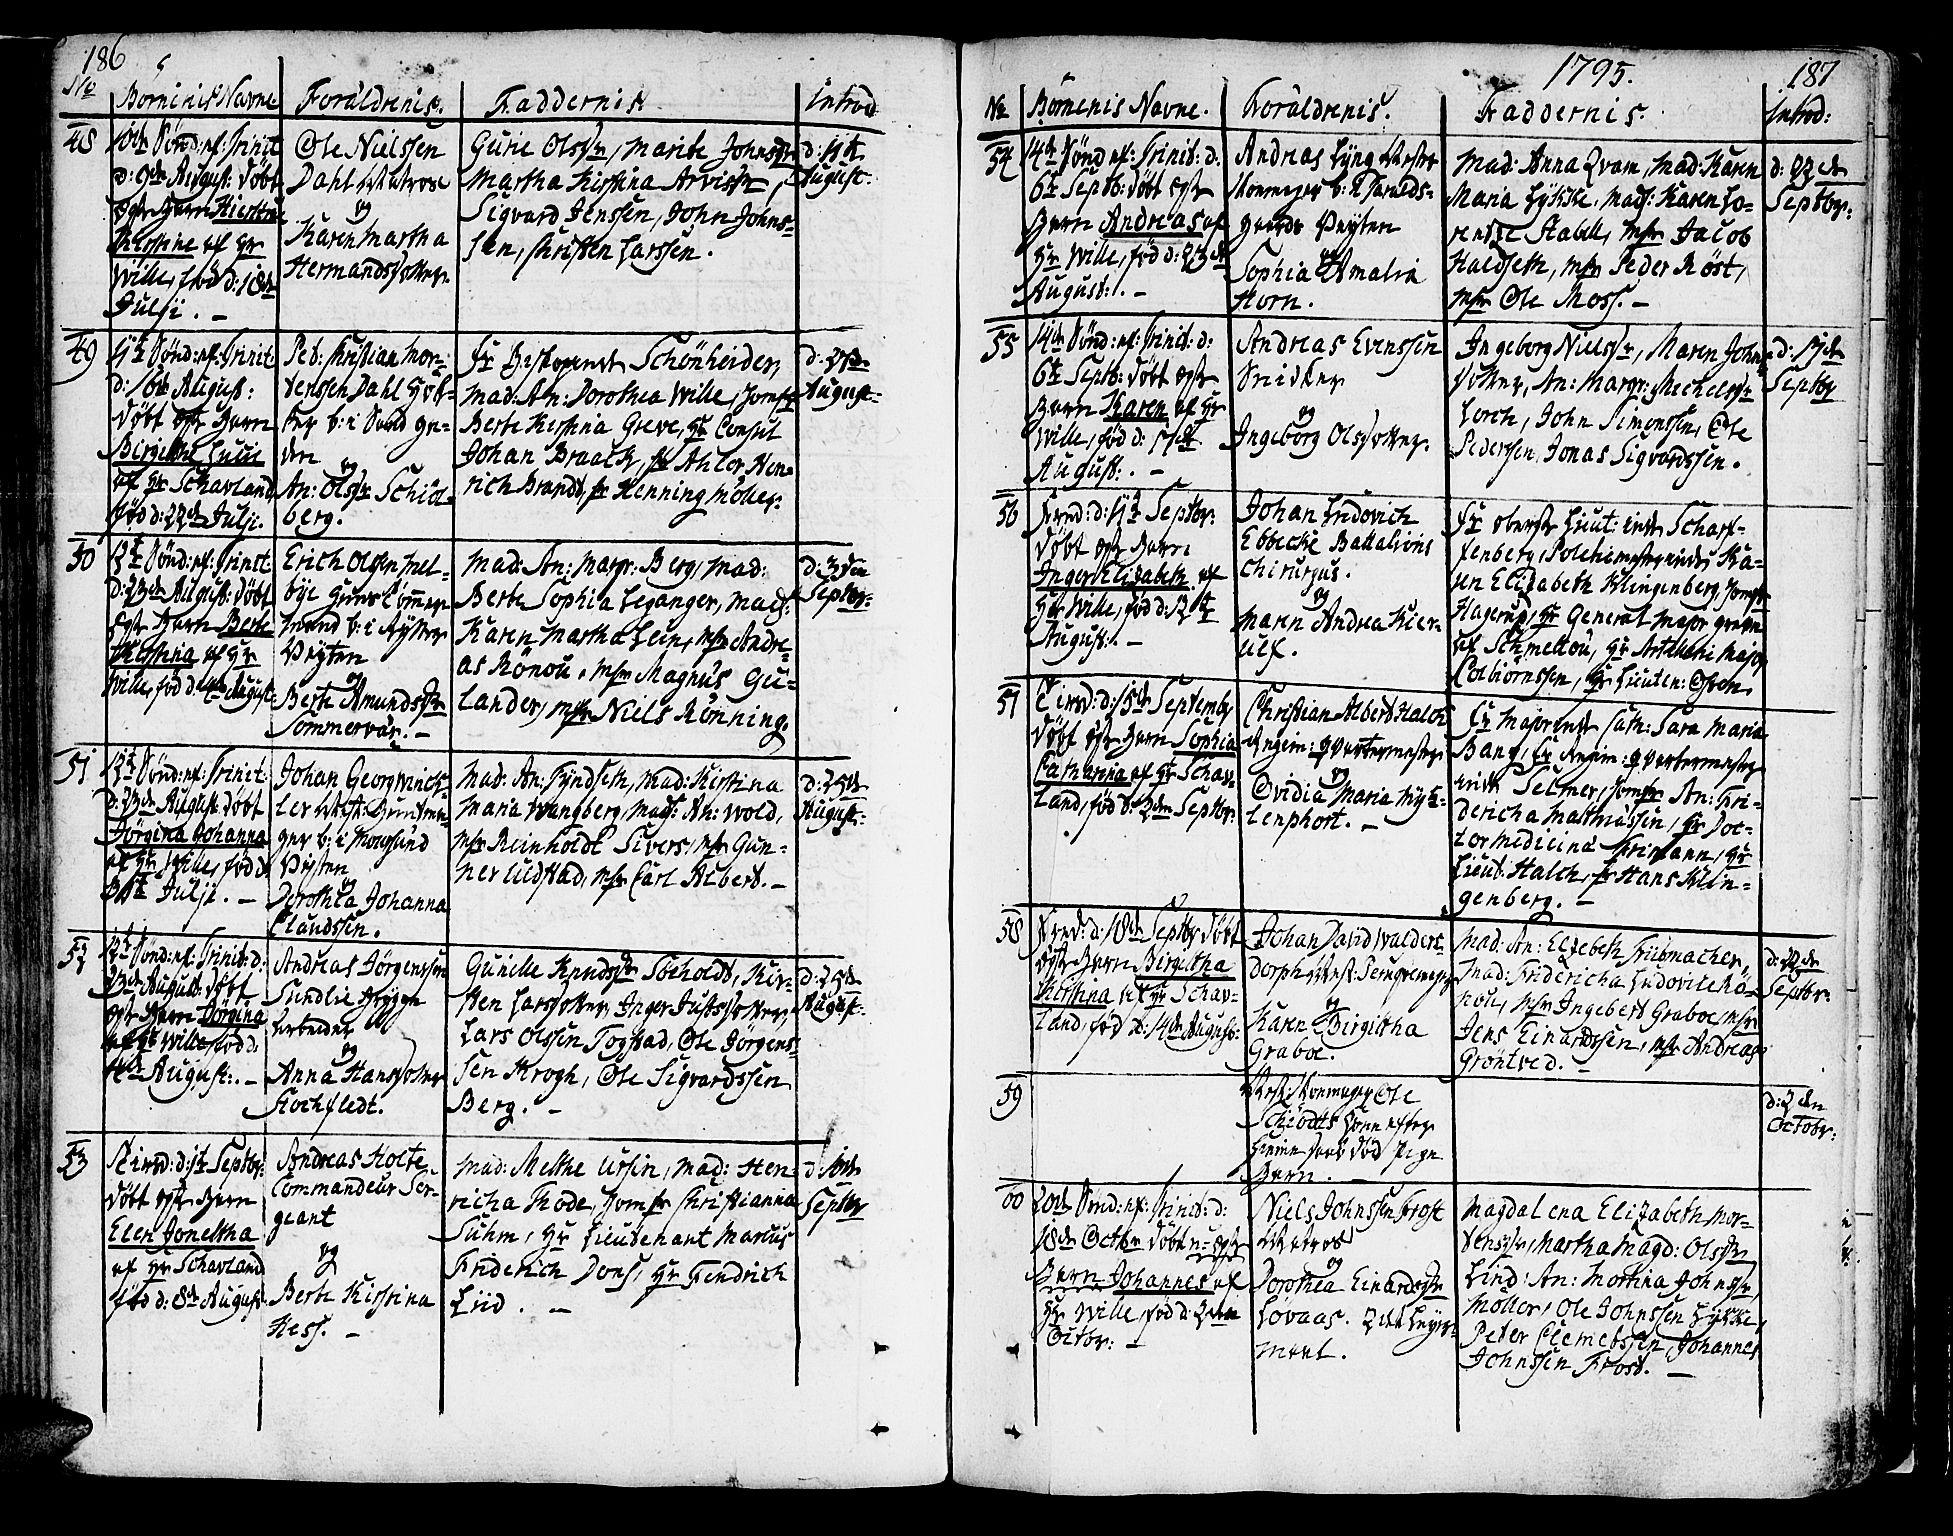 186
No
Børnenes Navne
Forældrenis.
Faddernis
Introd
48
10de Sønd: ef: Trinit
d: 9de August: døbt
ægte Barn Kierstine
Kirstine af Hr
Wille, fød d: 18de
Julji. –
Ole Nielssen
Dahl Matros
og
Karen Martha
Hermandsdotter
Gurie Olsdr, Marite Johnsdr
Martha Kirstina Arvisdr,
Sigvard Jenssen, John Johns-
sen, Christen Larssen.
August:
49
Sønd: ef: Trinit:
d: 16de August:
døbt ægte Barn
Birgitte Lucie
af Hr Schavland
fød d: 22de Julji.
Pet: Christian Mor-
tenssen Dahl
og
An: Olsdr Schiøl-
berg.
Fr Bistopinde Schönheider,
Mad: An: Dorothea Wille, Jomfr
Berte Kirstina Greve, Hr Consul
Johan Braack, Hr Ahlor Hen-
rich Brandt, Hr Henning Möller.
August:
50
12te Sønd: ef: Trinit:
d: 23de August: døbt
ægte Barn Berte
Kirstina af Hr
Wille, fød d: 4de August:
Erich Olssen Mel-
bye
og
Berte Amundsdr
Sommervær. –
Mad: An: Margr: Berg, Mad:
Berte Sophia Leganger, Mad:
Karen Martha Lein, Msr Andre-
as Rönou, Msr Magnus Gu-
lander, Msr Niels Rönning.
Septbr:
51
12te Sønd: ef: Trinit:
d: 23de August: døbt
Jörgina Johanna
af Hr Wille, fød d:
Julji. –
Johan Georg Winck-
ler
og
Dorothea Johanna
Claudssen.
Mad: An: Fyndseth, Mad: Kirstina
Maria Wangberg, Mad: An: Wold,
Msr Reinholdt Sivers, Msr Gun-
ner Ludstad, Msr Carl Albert. –
d: 25de
August:
52
12te Sønd: ef: Trinit: d:
23de August: døbt
ægte Barn Jörgina
af Hr Wille, fød d:
August: –
Andreas Jörgenssen
Sundlie
Arbeider
og
Anna Hansdotter
Hochfledt.
Gunille Knudsdr Soeholdt, Kir-
sten Larsdotter, Inger Justsdotter,
Lars Olssen Togstad, Ole Jörgens-
sen Krogh, Ole Sigvardssen
Berg. –
d: 25de
August:
53
Tirsd: d: 1te Septbr:
døbt ægte Barn
Elen Joneltha
af Hr Schavland
fød d: 8de August:
Andreas Holte
Commandeur Ser-
geant
og
Berte Kirstina
Hess. –
Mad: Melthe Ursin, Mad: Hen-
richa Thode, Jomfr Christianna
Suhm, Hr Lieutenant Marcus
Friderich Dons, Hr Fendrich
Liid. –
Septbr
1795.
187
No
Børnenis Navne.
Forældrenis.
Faddernis.
Introd:
54
14de Sønd: ef: Trinit: d:
6te Septb: døbt ægte
Barn Andreas af
Hr Wille, fød d: 23de
August: –
Andreas Lyng
og
Sophia Amalia
Horn.
Mad: Anna Qvam, Mad: Karen
Maria Lykke, Mad: Karen Lo-
rentze Stabell, Msr Jacob
Haldseth, Msr Peder Röst,
Msr Ole Moss. –
d: 23de
Septbr:
55
14de Sønd: ef: Trinit: d:
6te Septb: døbt ægte
Barn Karen af Hr
Wille, fød d:
August: –
Andreas Evenssen
Snidker
og
Ingeborg Olsdotter.
Ingeborg Nielsdr, Maren Johns-
dotter, An: Margr: Mechelsdr
Lorch, John Simonssen, Ole
Pederssen, Jonas Sigvardssen.
Septbr
56
Septbr:
døbt ægte Barn
Inger Elizabeth af
Hr Wille, fød d: 12te
August: –
Johan Ludovich
Ebbecke Battalions
Chirurgus.
og
Maren Andrea Kier-
ulf.
Fr Oberst Lieut:inde Scharf-
fenberg, Polchemesterinde Ka-
ren Elizabeth Klingenberg, Jomfr
Hagerup, Hr General Major Greve
af Schmettou, Hr Artilleri Major
Colbiörnssen, Hr Lieuten: Osten
57
Tirsd: d: 15de Septembr
døbt ægte Barn Sophia
Catharina af Hr Schav-
land, fød d: 3de Septbr:
Christian Albert Halch
Regim: qvartermester
og
Ovidia Maria Myh-
lenphort. –
Fr Majorinde Cath: Sara Maria
Bang, Fr Regim: qvartermester
inde Selmer, Jomfr An: Fri-
dericha Mathiassen, Hr Doc-
tor Medicina Thrimann, Hr
Lieut: Halch, Hr Hans Klin-
genberg. –
58
d: 18de Septbr døbt
ægte Barn Birgitha
Kirstina af Hr Schav-
land, fød d: 14de August:
Johan David Walders-
dorph
og
Karen Birgitha
Graboe.
Mad: An: Elzebeth Früsmacher
Mad: Fridericha Ludovike Rö-
nou, Msr Ingebert Graboe, Msr
Jens Einardssen, Msr Andreas
Grontved. –
d: 22de
Septbr:
59
Ole
Schiödts Kone efter
død Pige
Barn. –
d: 2den
Octobr:
60
20de Sønd: ef: Trinit: d:
18de Octbr døbt u-ægte
Barn Johannes af
Hr Wille fød d: 2den
Octbr: –
Niels Johnssen Frost
Matros
og
Dorothea Einardsdr
Lovaas. 2det Leyer-
maal.
Magdalena Elizabeth Mor-
tensdr, Martha Magd: Olsdr
Lind, An: Martina Johnsdr,
Möller, Ole Johnssen Lykke,
Peter Clemetssen, Johannes
Johnssen Frost. –